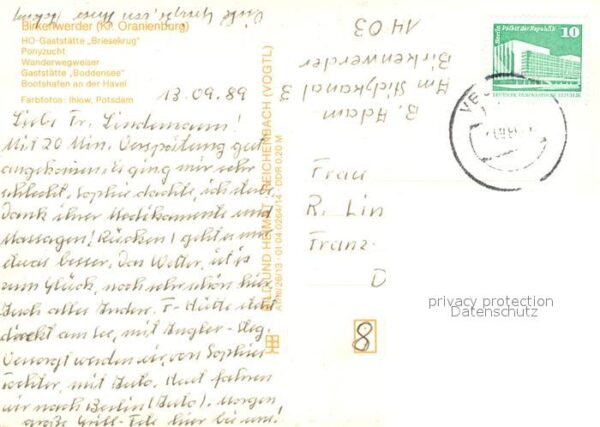 Birkenwerder (Kr. Oranienburg)
HO-Gaststätte „Briesekrug"
Ponyzucht
Wanderwegweiser
Gaststätte „Boddensee"
Bootshafen an der Havel
Farbfotos: Ihlow, Potsdam
13.09.89
Liebe Fr. Lindemann!
Mit 20 Min. Verspätung gut
angekommen. Es ging mir sehr
schlecht, Sophie dachte, ich
Dank ihrer Medikamente und
Massagen! (Rücken) geht es mir
etwas besser. Das Wetter ist
zum Glück, noch sehr schön hier
Auch alles Andere. F-Hütte
direkt am See, mit Angler-Steg.
Versorgt werden wir, von Sophies
Tochter, mit Auto. Heut fahren
wir nach Berlin (Auto). Morgen
große Grill-Fete hier bei uns!
Viele Grüße, von Ihrer
BILD UND HEIMAT REICHENBACH (VOGTL)
A1/III/26/13 01 04 0264/14 DDR 0,20 M
B. Adam
Am Stichkanal 3
Birkenwerder
1403
Berlin, Palast der Republik
10
DEUTSCHE DEMOKRATISCHE REPUBLIK
Frau
R. Lin
Franz-
D
8
privacy protection
Datenschutz